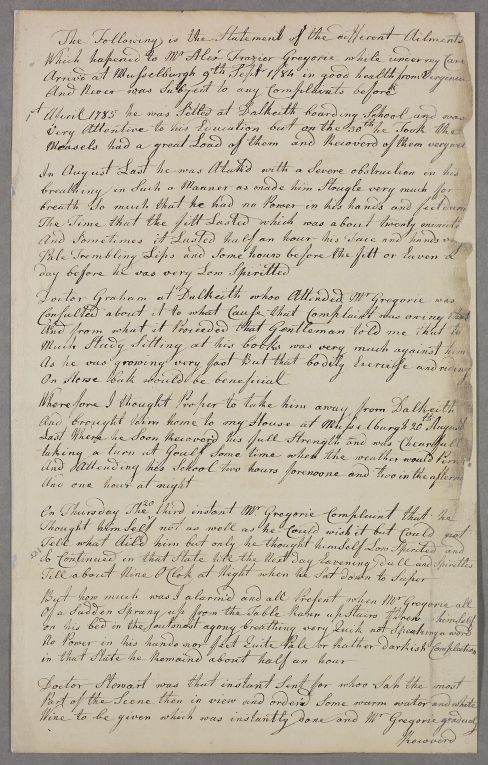 The Following is the Statement of the different Ailments
Which hapened to Mr Alexr Frazier Gregorie while under my Care
Arrived at Musselburgh 9th Sept 1784 in good health from Virginia
And Never was Subject to any Complaints before
1st Aprill 1785 he was Setled at Dalkeith boarding School and was
Very Attentive to his Education but on the 30th he Took the
Measels had a great Load of them and Recoverd of them very well
In August Last he was Atakd with a Severe obstruction in his
breathing in Such a Manner as made him Strugle very much for
breath So much that he had no Power in his hands and feet during
The Time that the fitt Lasted which was about twenty minuts
And Sometimes it Lasted half an hour his face and hands
Pale Trembling Lips and Some hours before the fitt or Even a
day before he was very Low Spiritted
Doctor Graham at Dalkeith whoo Attended Mr Gregorie was
Consulted about it to what Cause that Complaint was owing
And from what it Proceeded that Gentleman told me that to
Much Study Sitting at his books was very much against him
As he was growing very fast But that bodily Exercise and riding
On Horse back would be beneficial
Wherefore I thought Proper to take him away from Dalkeith
And brought him home to my House at Musselburgh 20th August
Last Where he Soon Recoverd his full Strength and was Chearfull
taking a turn at Goulf Some time when the weather would Permit
And Attending his School two hours forenoone and two in the afternoon
And one hour at night
On Thursday the 20 third instant Mr Gregorie Complaind that he
Thought himself not as well as he Could wish it but Could not
Tell what Aild him but only he thought himself Low Spirited and
So Continued in that State till the Next day Eavening dull and Spiritles
Till about Nine O Clok at Night when he Sat down to Super
But how much was I alarmd and all Present when Mr Gregorie all
Of a Sudden Sprang up from the Table Raher up Stairs threw himself
on his bed in the outmost agony breathing very Quick not Speaking a word
No Power in his hands nor feet Quite Pale or Rather darkish Complection
in that State he Remaind about half an hour
Doctor Stewart was that instant Sent for whoo Sah the most
Part of the Scene then in view and orderd Some warm water and white
Wine to be given which was instantly done and Mr Gregorie gradualy
Recoverd